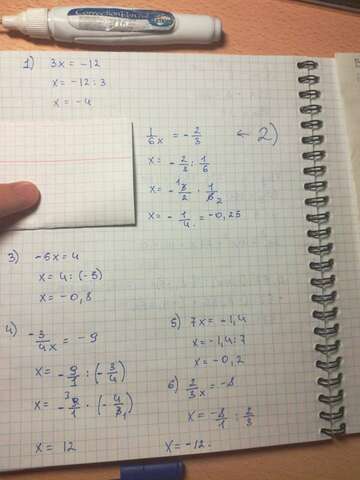 Correction Pen
1) 3x = -12
x = -12 : 3
x = -4
1/6x = -2/3 ← 2)
x = -2/3 : 1/6
x = -3/2 · 1/6
x = -1/4 = -0,25
3) -5x = 4
x = 4 : (-5)
x = -0,8
4) -3/4x = -9
x = -9/1 : (-3/4)
x = -9/1 · (-4/3)
x = 12
5) 7x = -1,4
x = -1,4 : 7
x = -0,2
6) 2/3x = -8
x = -8/1 : 2/3
x = -12.